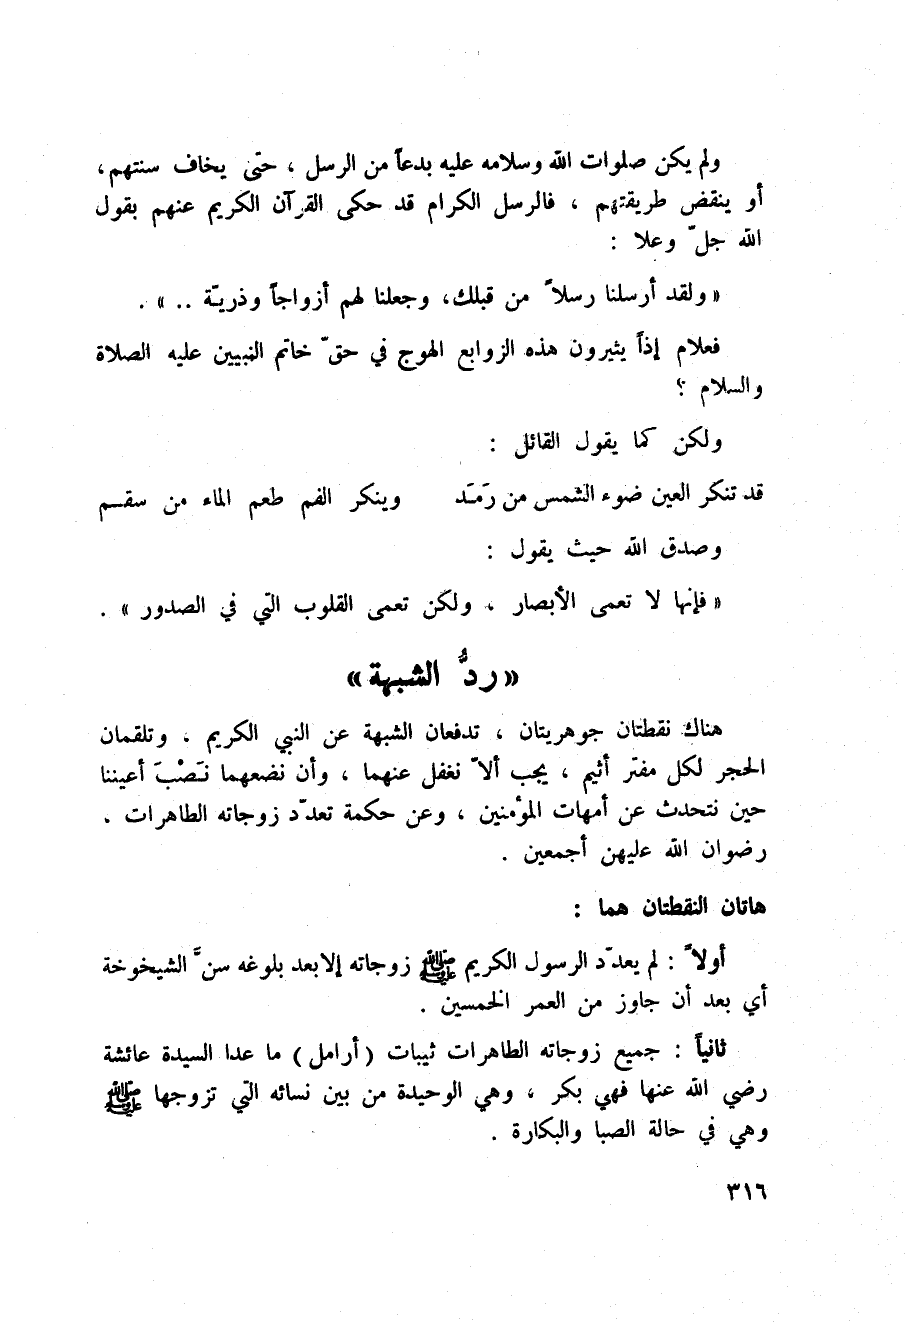 ولم يكن صلوات الله وسلامه عليه بدعاً من الرسل ، حتى يخاف سنتهم ،
أو ينقض طريقتهم ، فالرسل الكرام قد حكى القرآن الكريم عنهم بقول
الله جلّ وعلا :
« ولقد أرسلنا رسلاً من قبلك، وجعلنا لهم أزواجاً وذريّة .. » .
فعلام إذاً يثيرون هذه الزوابع الهوج في حقّ خاتم النبيين عليه الصلاة
والسلام ؟
ولكن كما يقول القائل :
قد تنكر العين ضوء الشمس من رَمَد وينكر الفم طعم الماء من سقم
وصدق الله حيث يقول :
« فإنها لا تعمى الأبصار ، ولكن تعمى القلوب التي في الصدور » .
«ردُّ الشبهة»
هناك نقطتان جوهريتان ، تدفعان الشبهة عن النبي الكريم ، وتلقمان
الحجر لكل مفتر أثيم ، يجب ألاّ نغفل عنهما ، وأن نضعهما نَصْبَ أعيننا
حين نتحدث عن أمهات المؤمنين ، وعن حكمة تعدّد زوجاته الطاهرات .
رضوان الله عليهن أجمعين .
هاتان النقطتان هما :
أولاً : لم يعدّد الرسول الكريم ﷺ زوجاته إلا بعد بلوغه سنَّ الشيخوخة
أي بعد أن جاوز من العمر الخمسين .
ثانياً : جميع زوجاته الطاهرات ثيبات (أرامل) ما عدا السيدة عائشة
رضي الله عنها فهي بكر ، وهي الوحيدة من بين نسائه التي تزوجها ﷺ
وهي في حالة الصبا والبكارة .
٣١٦